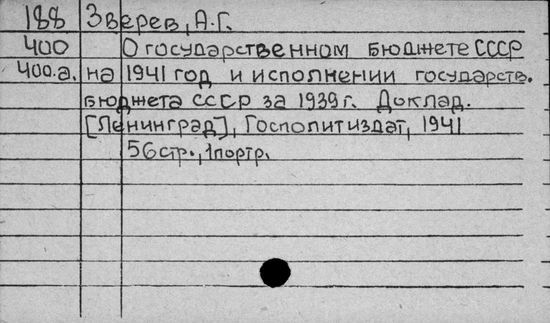 188 Зверев, А.Г.
400 О государственном бюджете СССР
400.а. на 1941 год и исполнении государств.
бюджета СССР за 1939 г. Доклад.
[Ленинград], Госполитиздат, 1941
56стр., 1портр.